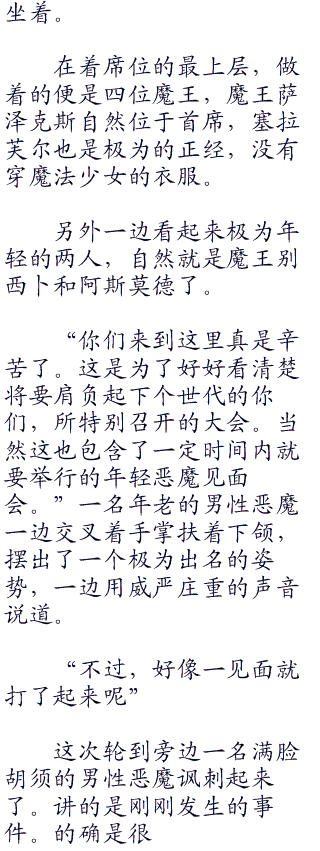 坐着。
在着席位的最上层，做
着的便是四位魔王，魔王萨
泽克斯自然位于首席，塞拉
芙尔也是极为的正经，没有
穿魔法少女的衣服。
另外一边看起来极为年
轻的两人，自然就是魔王别
西卜和阿斯莫德了。
“你们来到这里真是辛
苦了。这是为了好好看清楚
将要肩负起下个世代的你
们，所特别召开的大会。当
然这也包含了一定时间内就
要举行的年轻恶魔见面
会。”一名年老的男性恶魔
一边交叉着手掌扶着下颌，
摆出了一个极为出名的姿
势，一边用威严庄重的声音
说道。
“不过，好像一见面就
打了起来呢”
这次轮到旁边一名满脸
胡须的男性恶魔讽刺起来
了。讲的是刚刚发生的事
件。的确是很